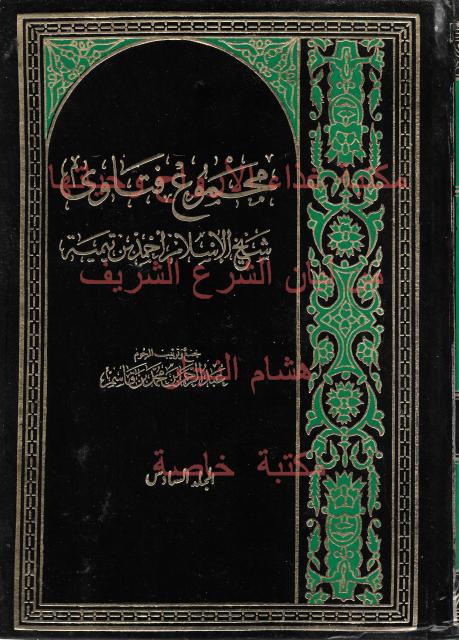 مجموع فتاوى
مكتبة غذاء
شيخ الإسلام أحمد بن تيمية
الشرع الشريف
جمع وترتيب المرحوم
عبد الرحمن بن محمد بن قاسم
هشام
مكتبة خاصة
المجلد السادس